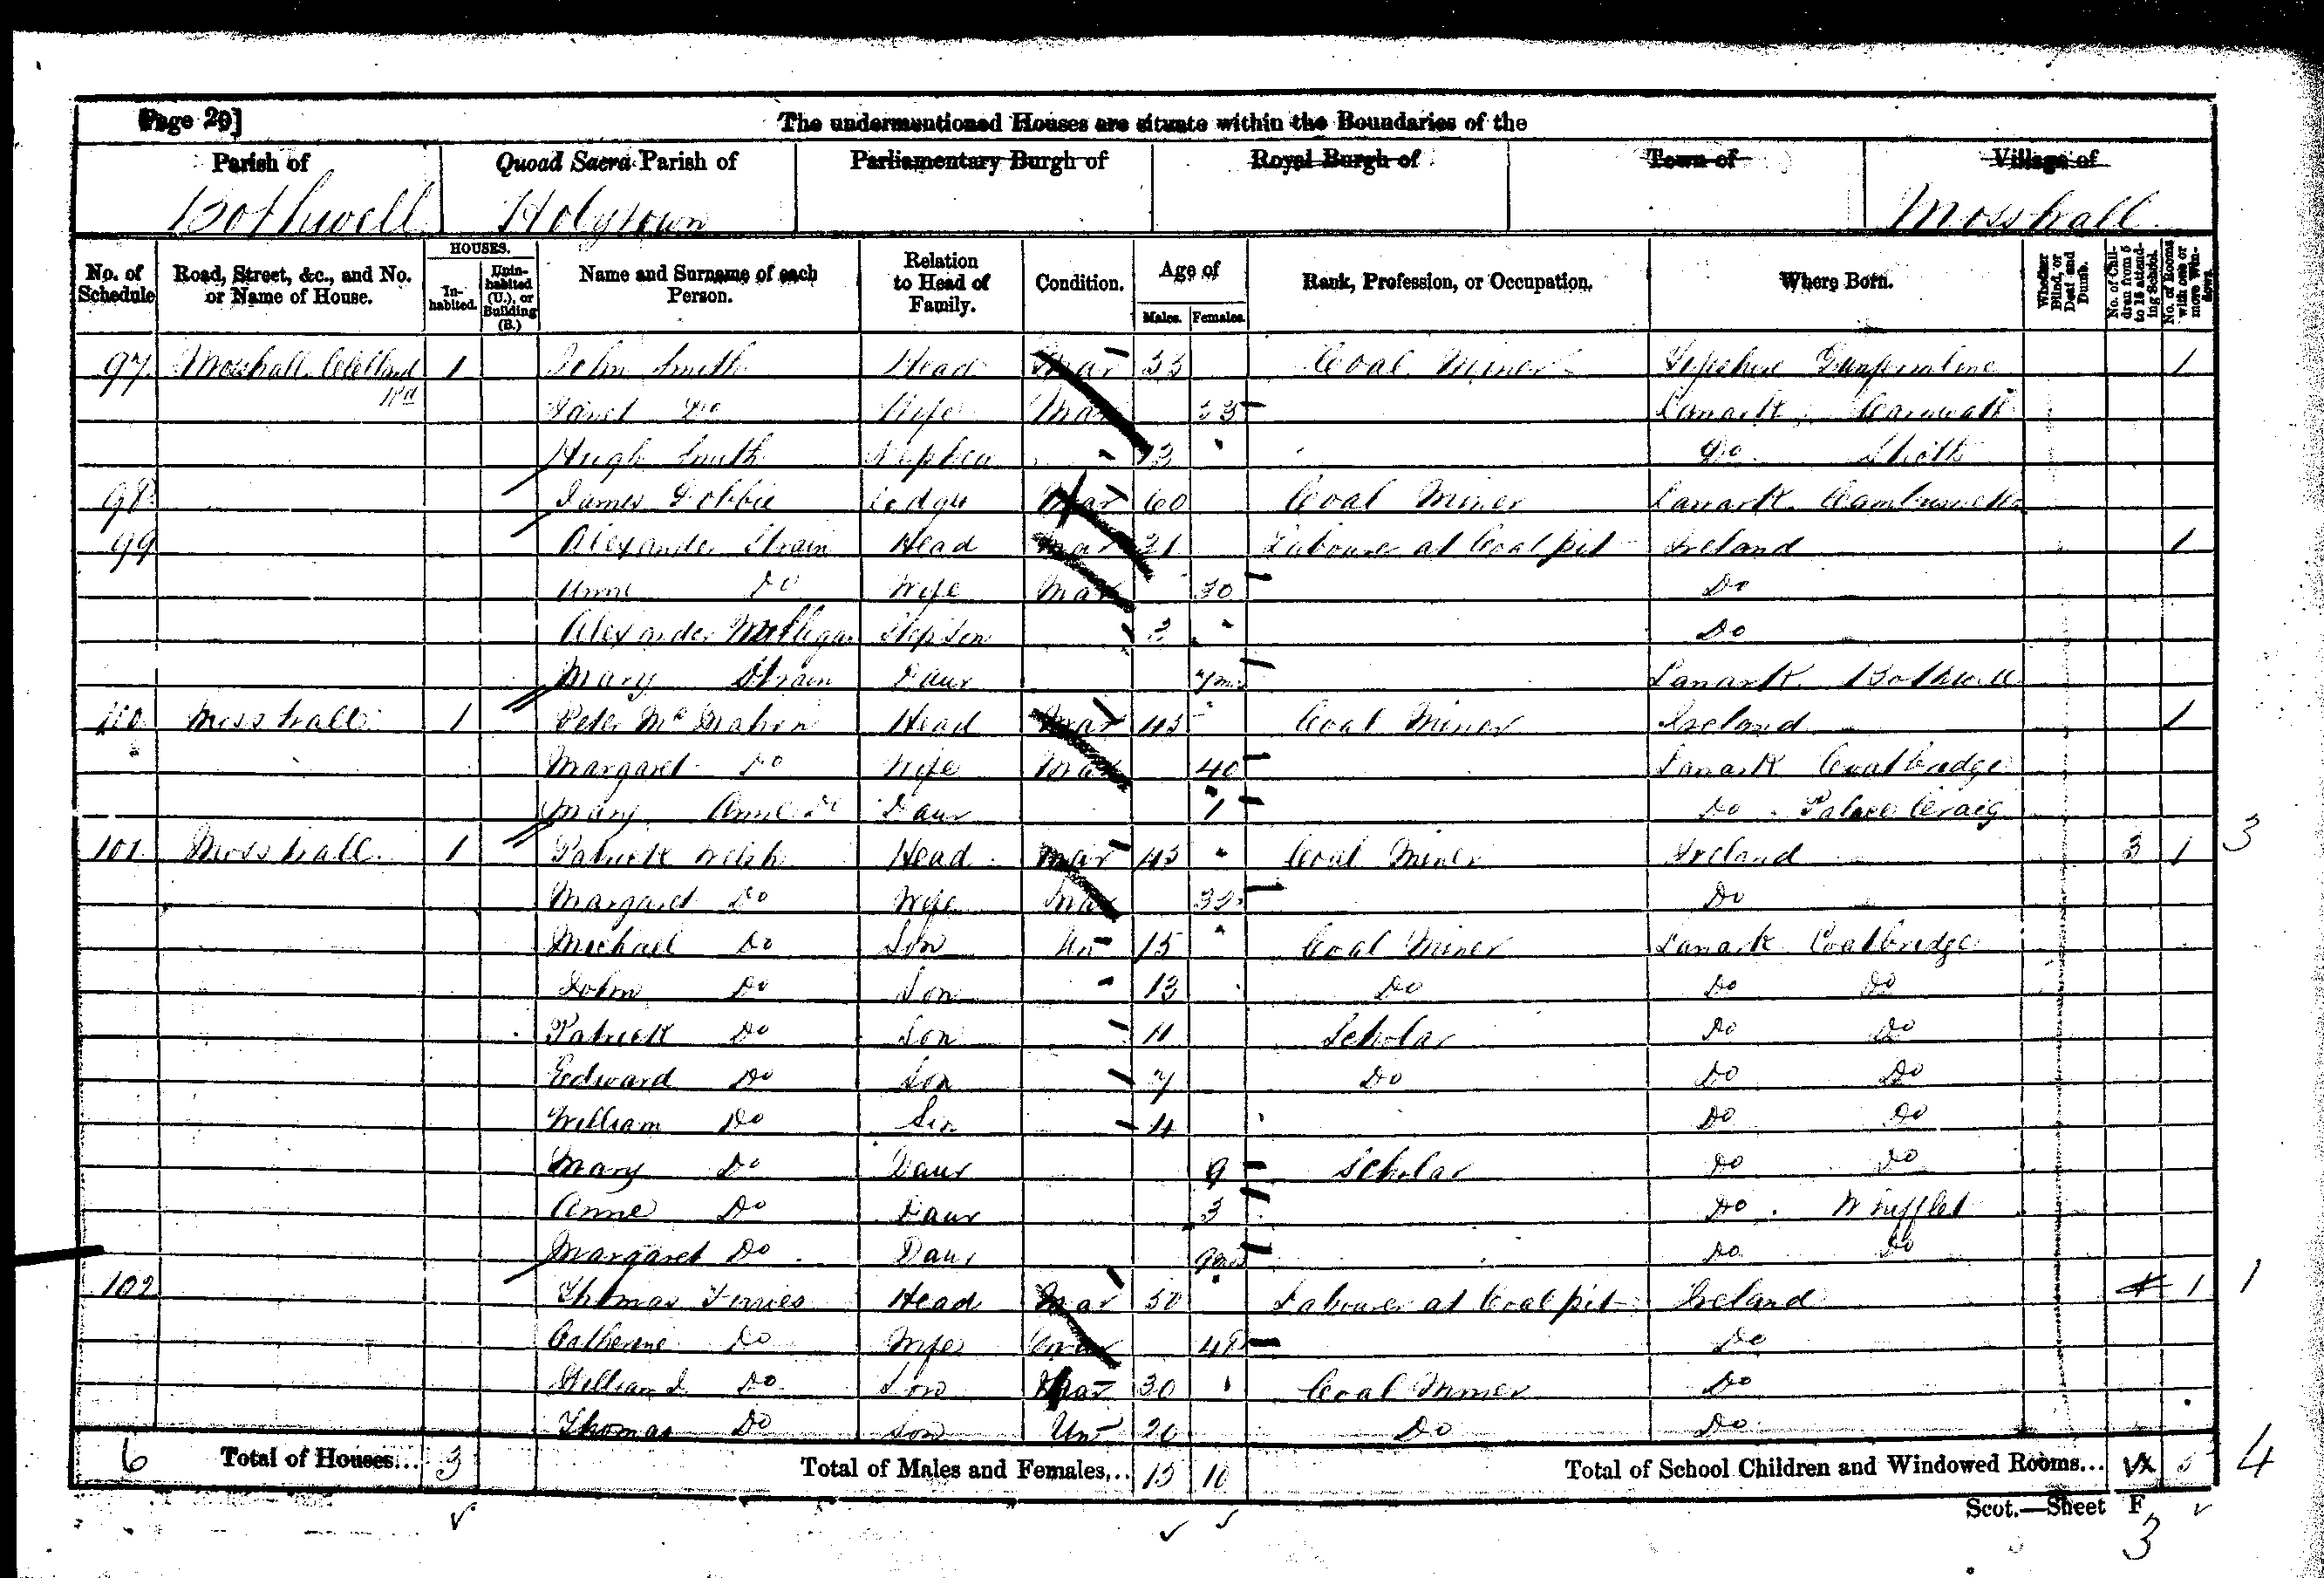 Page 20]
The undermentioned Houses are situate within the Boundaries of the
Parish of Quoad Sacra Parish of Parliamentary Burgh of Royal Burgh of Town of Village of
Bothwell Holytown Mosshall
No. of Schedule Road, Street, &c., and No. or Name of House. HOUSES. Inhabited. Uninhabited (U.), or Building (B.) Name and Surname of each Person. Relation to Head of Family. Condition. Age of Males. Females. Rank, Profession, or Occupation. Where Born. Whether Blind, or Deaf and Dumb. No. of Children from 5 to 15 attending School. No. of Rooms with one or more Windows.
97 Mosshall Clelland Rd 1 John Smith Head Mar 33 Coal Miner Fifeshire Dunfermline 1
Janet Do Wife Mar 33 Lanark Carnwath
Hugh Smith Nephew 13 Do Shotts
98 James Dobbie Lodger Mar 60 Coal Miner Lanark
99 Alexander Strain Head Mar 31 Labourer at Coal pit Ireland 1
Anne Do Wife Mar 30 Do
Alexander Milligan Step Son 3 Do
Mary Strain Daur 7 ms Lanark Bothwell
100 Mosshall 1 Peter McMahon Head Mar 45 Coal Miner Ireland 1
Margaret Do Wife Mar 40 Lanark Coatbridge
Mary Anne Do Daur 1 Do Palace Craig
101 Mosshall 1 Patrick Welsh Head Mar 45 Coal Miner Ireland 3 1 3
Margaret Do Wife Mar Do
Michael Do Son Un 15 Coal Miner Lanark Coatbridge
John Do Son 13 Do Do Do
Patrick Do Son 11 Scholar Do Do
Edward Do Son 7 Do Do Do
William Do Son 4 Do Do
Mary Do Daur 9 Scholar Do Do
Anne Do Daur 3 Do Whifflet
Margaret Do Daur 9 ms Do Do
102 Thomas Ferries Head Mar 50 Labourer at Coal pit Ireland 1 1
Catherine Do Wife Mar 48 Do
William J. Do Son Mar 30 Coal Miner Do
Thomas Do Son Un 20 Do Do
6 Total of Houses... 3 Total of Males and Females... 15 10 Total of School Children and Windowed Rooms... 5 4
Scot.—Sheet F
3